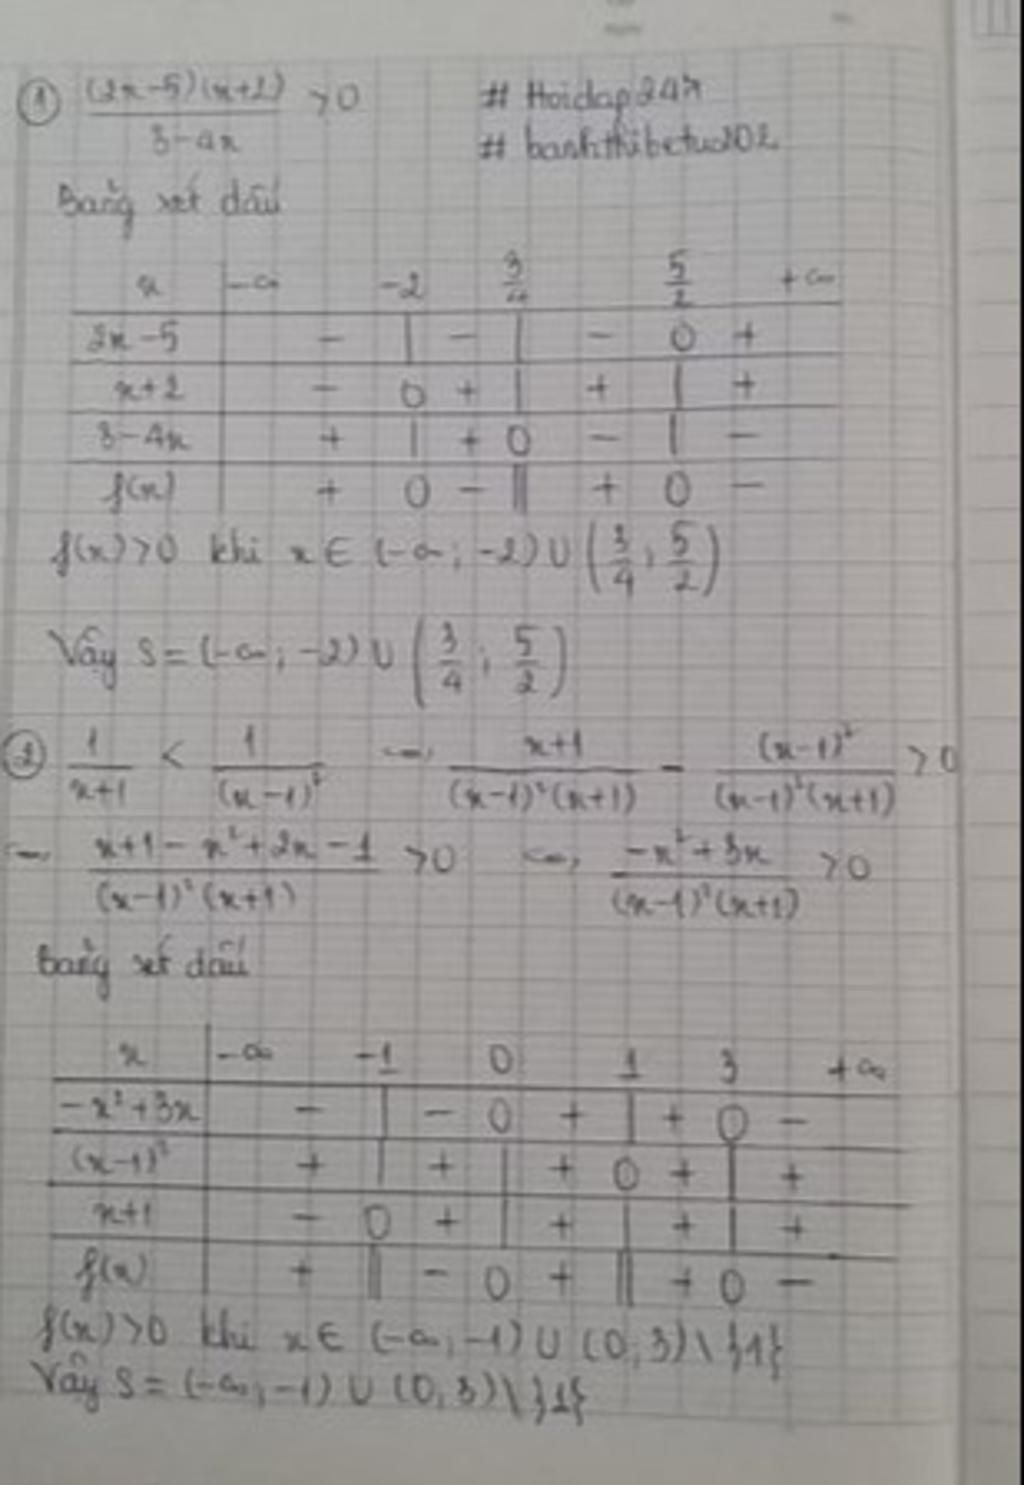 ① (2x-5)(x+2) / 3-4x >0 # Hoidap247
# banhthibetuo202
Bảng xét dấu
x -∞ -2 3/4 5/2 +∞
2x-5 - | - | - 0 +
x+2 - 0 + | + | +
3-4x + | + 0 - | -
f(x) + 0 - || + 0 -
f(x)>0 khi x∈ (-∞; -2) ∪ (3/4; 5/2)
Vậy S = (-∞; -2) ∪ (3/4; 5/2)
② 1/(x+1) < 1/(x-1)² <=> (x+1)/((x-1)²(x+1)) - (x-1)²/((x-1)²(x+1)) >0
<=> (x+1-x²+2x-1)/((x-1)²(x+1)) >0 <=> (-x²+3x)/((x-1)²(x+1)) >0
Bảng xét dấu
x -∞ -1 0 1 3 +∞
-x²+3x - | - 0 + | + 0 -
(x-1)² + | + | + 0 + | +
x+1 - 0 + | + | + | +
f(x) + || - 0 + || + 0 -
f(x)>0 khi x∈ (-∞; -1) ∪ (0; 3) \ }1{
Vậy S = (-∞; -1) ∪ (0; 3) \ }1{